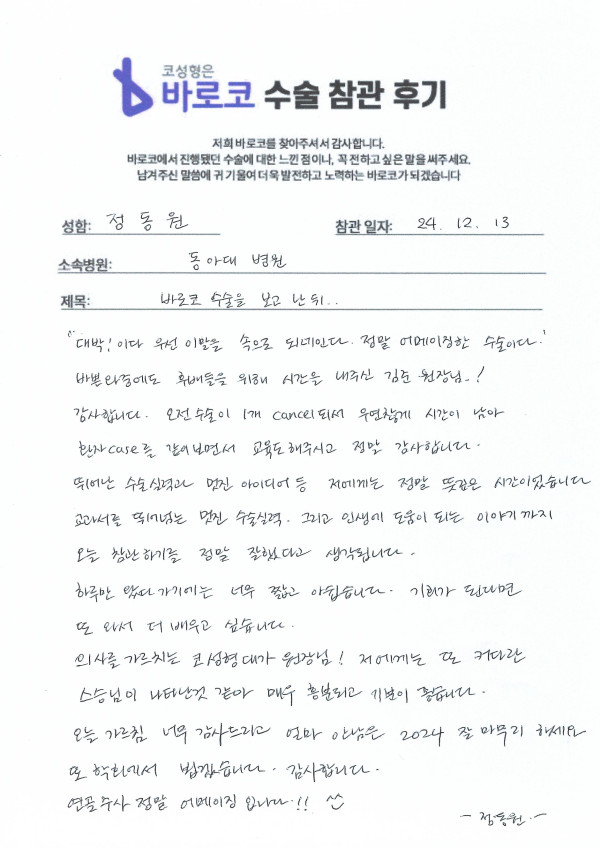 코성형은
바로코 수술 참관 후기
저희 바로코를 찾아주셔서 감사합니다.
바로코에서 진행됐던 수술에 대한 느낀 점이나, 꼭 전하고 싶은 말을 써주세요.
남겨주신 말씀에 귀 기울여 더욱 발전하고 노력하는 바로코가 되겠습니다
성함: 정동원 참관 일자: 24. 12. 13
소속병원: 동아대 병원
제목: 바로코 수술을 보고 난 뒤..
"대박! 이다 우선 이말을 속으로 되네인다. 정말 어메이징한 수술이다."
바쁜와중에도 후배들을 위해 시간을 내주신 김준 원장님..!
감사합니다. 오전수술이 1개 cancel되서 우연찮게 시간이 남아
환자case를 같이보면서 교육도해주시고 정말 감사합니다.
뛰어난 수술실력과 멋진 아이디어 등 저에게는 정말 뜻깊은 시간이었습니다
교과서를 뛰어넘는 멋진 수술실력. 그리고 인생에 도움이 되는 이야기까지
오늘 참관하기를 정말 잘했다고 생각됩니다.
하루만 왔다가기에는 너무 짧고 아쉽습니다. 기회가 된다면
또 와서 더 배우고 싶습니다.
의사를 가르치는 코성형대가 원장님! 저에게는 또 커다란
스승님이 나타난것 같아 매우 흥분되고 기분이 좋습니다.
오늘 가르침 너무 감사드리고 얼마 안남은 2024 잘 마무리 하세요
또 학회에서 뵙겠습니다. 감사합니다.
연골주사 정말 어메이징 입니다..!!
- 정동원. -